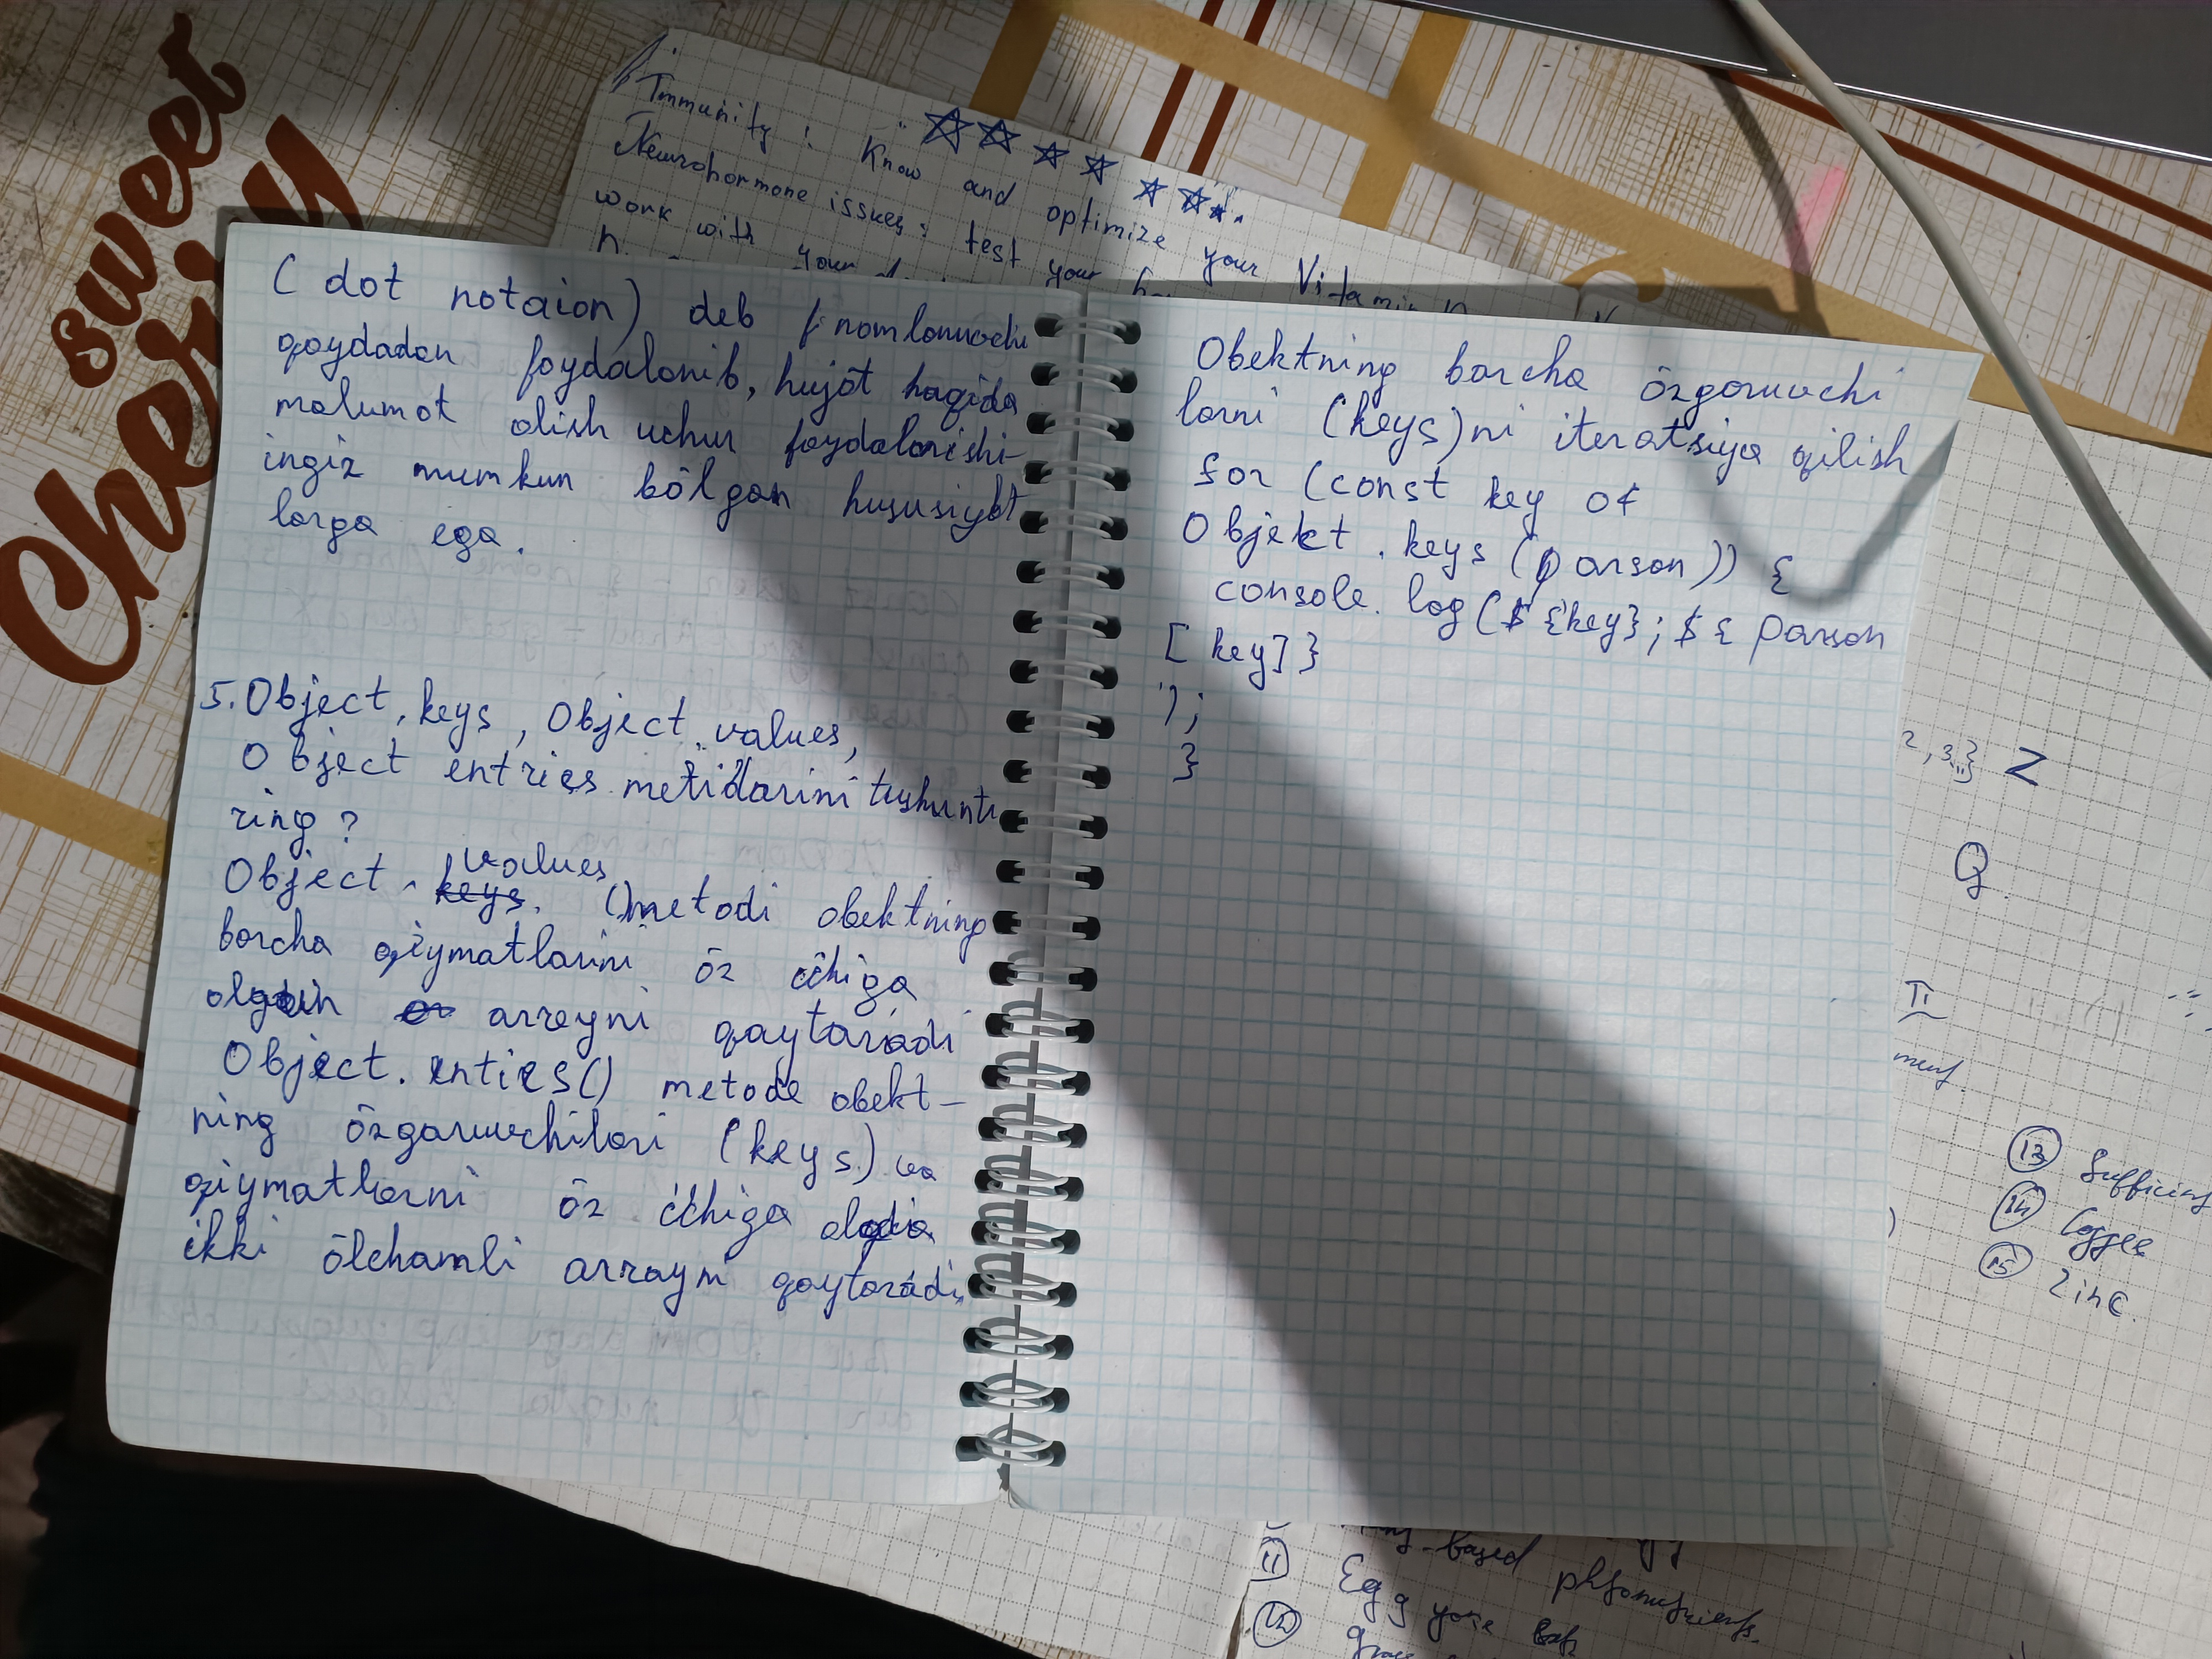 sweet
Cherry
Immunity: Know and optimize your Vitamin
Neurohormone issues: test your
work with your
( dot notaion) deb nomlanuvchi
qoydadan foydalanib, hujöt haqida
malumot olish uchun foydalanishi-
ingiz mumkun bölgan hususiyat
larga ega.
5. Object, keys, Object values,
Object entries metidlarini tushunti
ring?
values
Object . keys. () metodi obektning
barcha qiymatlarini öz ichiga
olgan arreyni qaytaradi
Object. enties() metode obekt-
ning özgaruvchilari (keys) va
qiymatlarni öz ichiga
ikki ölchamli arrayni qaytaradi.
Obektning barcha özgaruvchi
larni (keys)ni iteratsiya qilish
for (const key of
Objekt . keys (parson)) {
console. log(${key}; ${ parson
[ key] }
');
}
2, 3.} Z
Q
π
ment
13 Sufficing
14 Coffee
15 Zinc.
11 Egg
12
-based